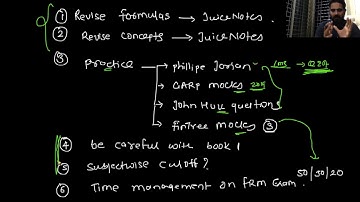 ① Revise formulas → JuiceNotes.
② Revise concepts → JuiceNotes
③ Practice → phillipe Jorion - 1ms →
→ GARP mocks
→ John Hull questions
→ fintree mocks ③
④ be careful with book 1
⑤ Subjectwise cutoff?
50/30/20
⑥ Time management on FRM Exam.